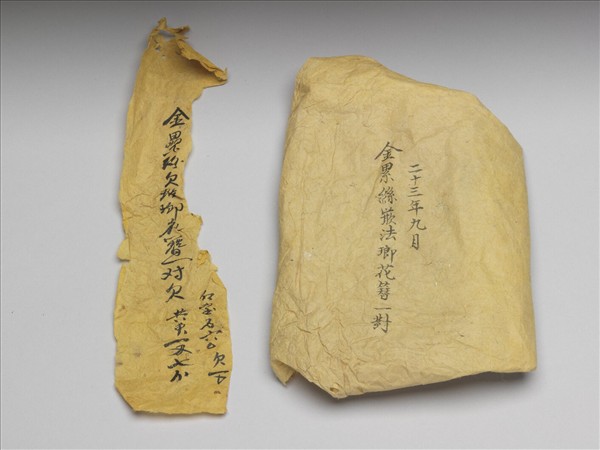 二十三年九月
金累絲嵌法瑯花簪一對
金累絲欠法瑯花簪一对欠 共重一两七分
红宝石六 欠一